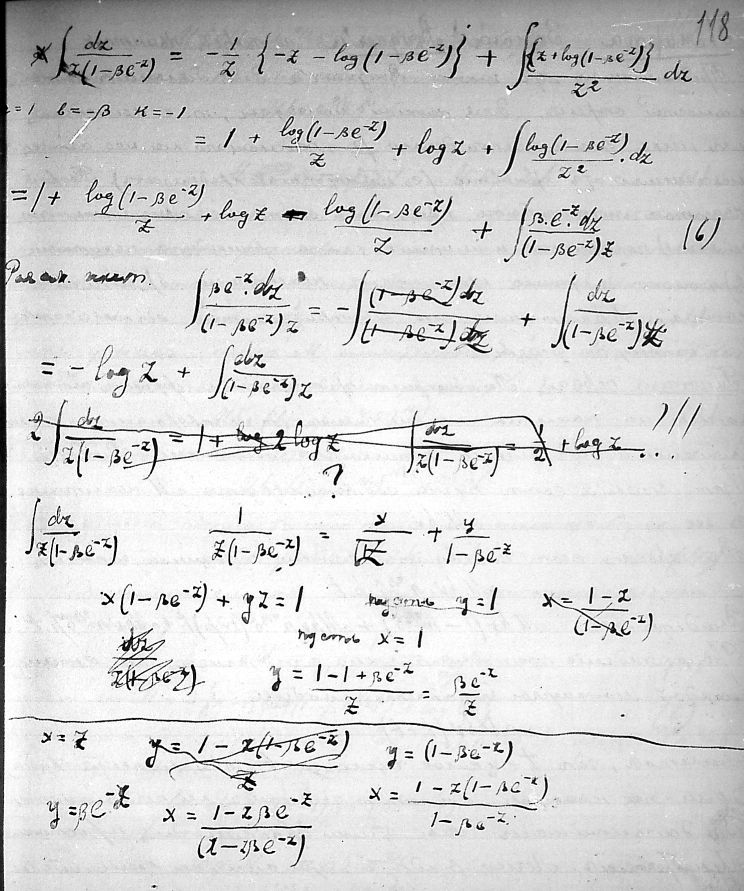 118
∫ dz / z(1-βe^-z) = -1/z {-z - log(1-βe^-z)} + ∫ {z+log(1-βe^-z)} / z² dz
=1 b=-β k=-1
= 1 + log(1-βe^-z) / z + log z + ∫ log(1-βe^-z) / z² . dz
= 1 + log(1-βe^-z) / z + log z - log(1-βe^-z) / z + ∫ β.e^-z.dz / (1-βe^-z) z (6)
∫ βe^-z.dz / (1-βe^-z) z = -∫ (1-βe^-z) dz / (1-βe^-z) dz + ∫ dz / (1-βe^-z) z
= -log z + ∫ dz / (1-βe^-z) z
2 ∫ dz / z(1-βe^-z) = 1 + log 2 log z ∫ dz / z(1-βe^-z) = 1/2 + log z . !!!
?
∫ dz / z(1-βe^-z) 1 / z(1-βe^-z) = x / z + y / 1-βe^-z
x(1-βe^-z) + yz = 1 пусть y=1 x = 1-z / (1-βe^-z)
пусть x = 1
dz / z(1-βe^-z) y = 1-1+βe^-z / z = βe^-z / z
x = z y = 1 - z(1-βe^-z) / z y = (1-βe^-z)
y = βe^-z x = 1-zβe^-z / (z-zβe^-z) x = 1-z(1-βe^-z) / 1-βe^-z